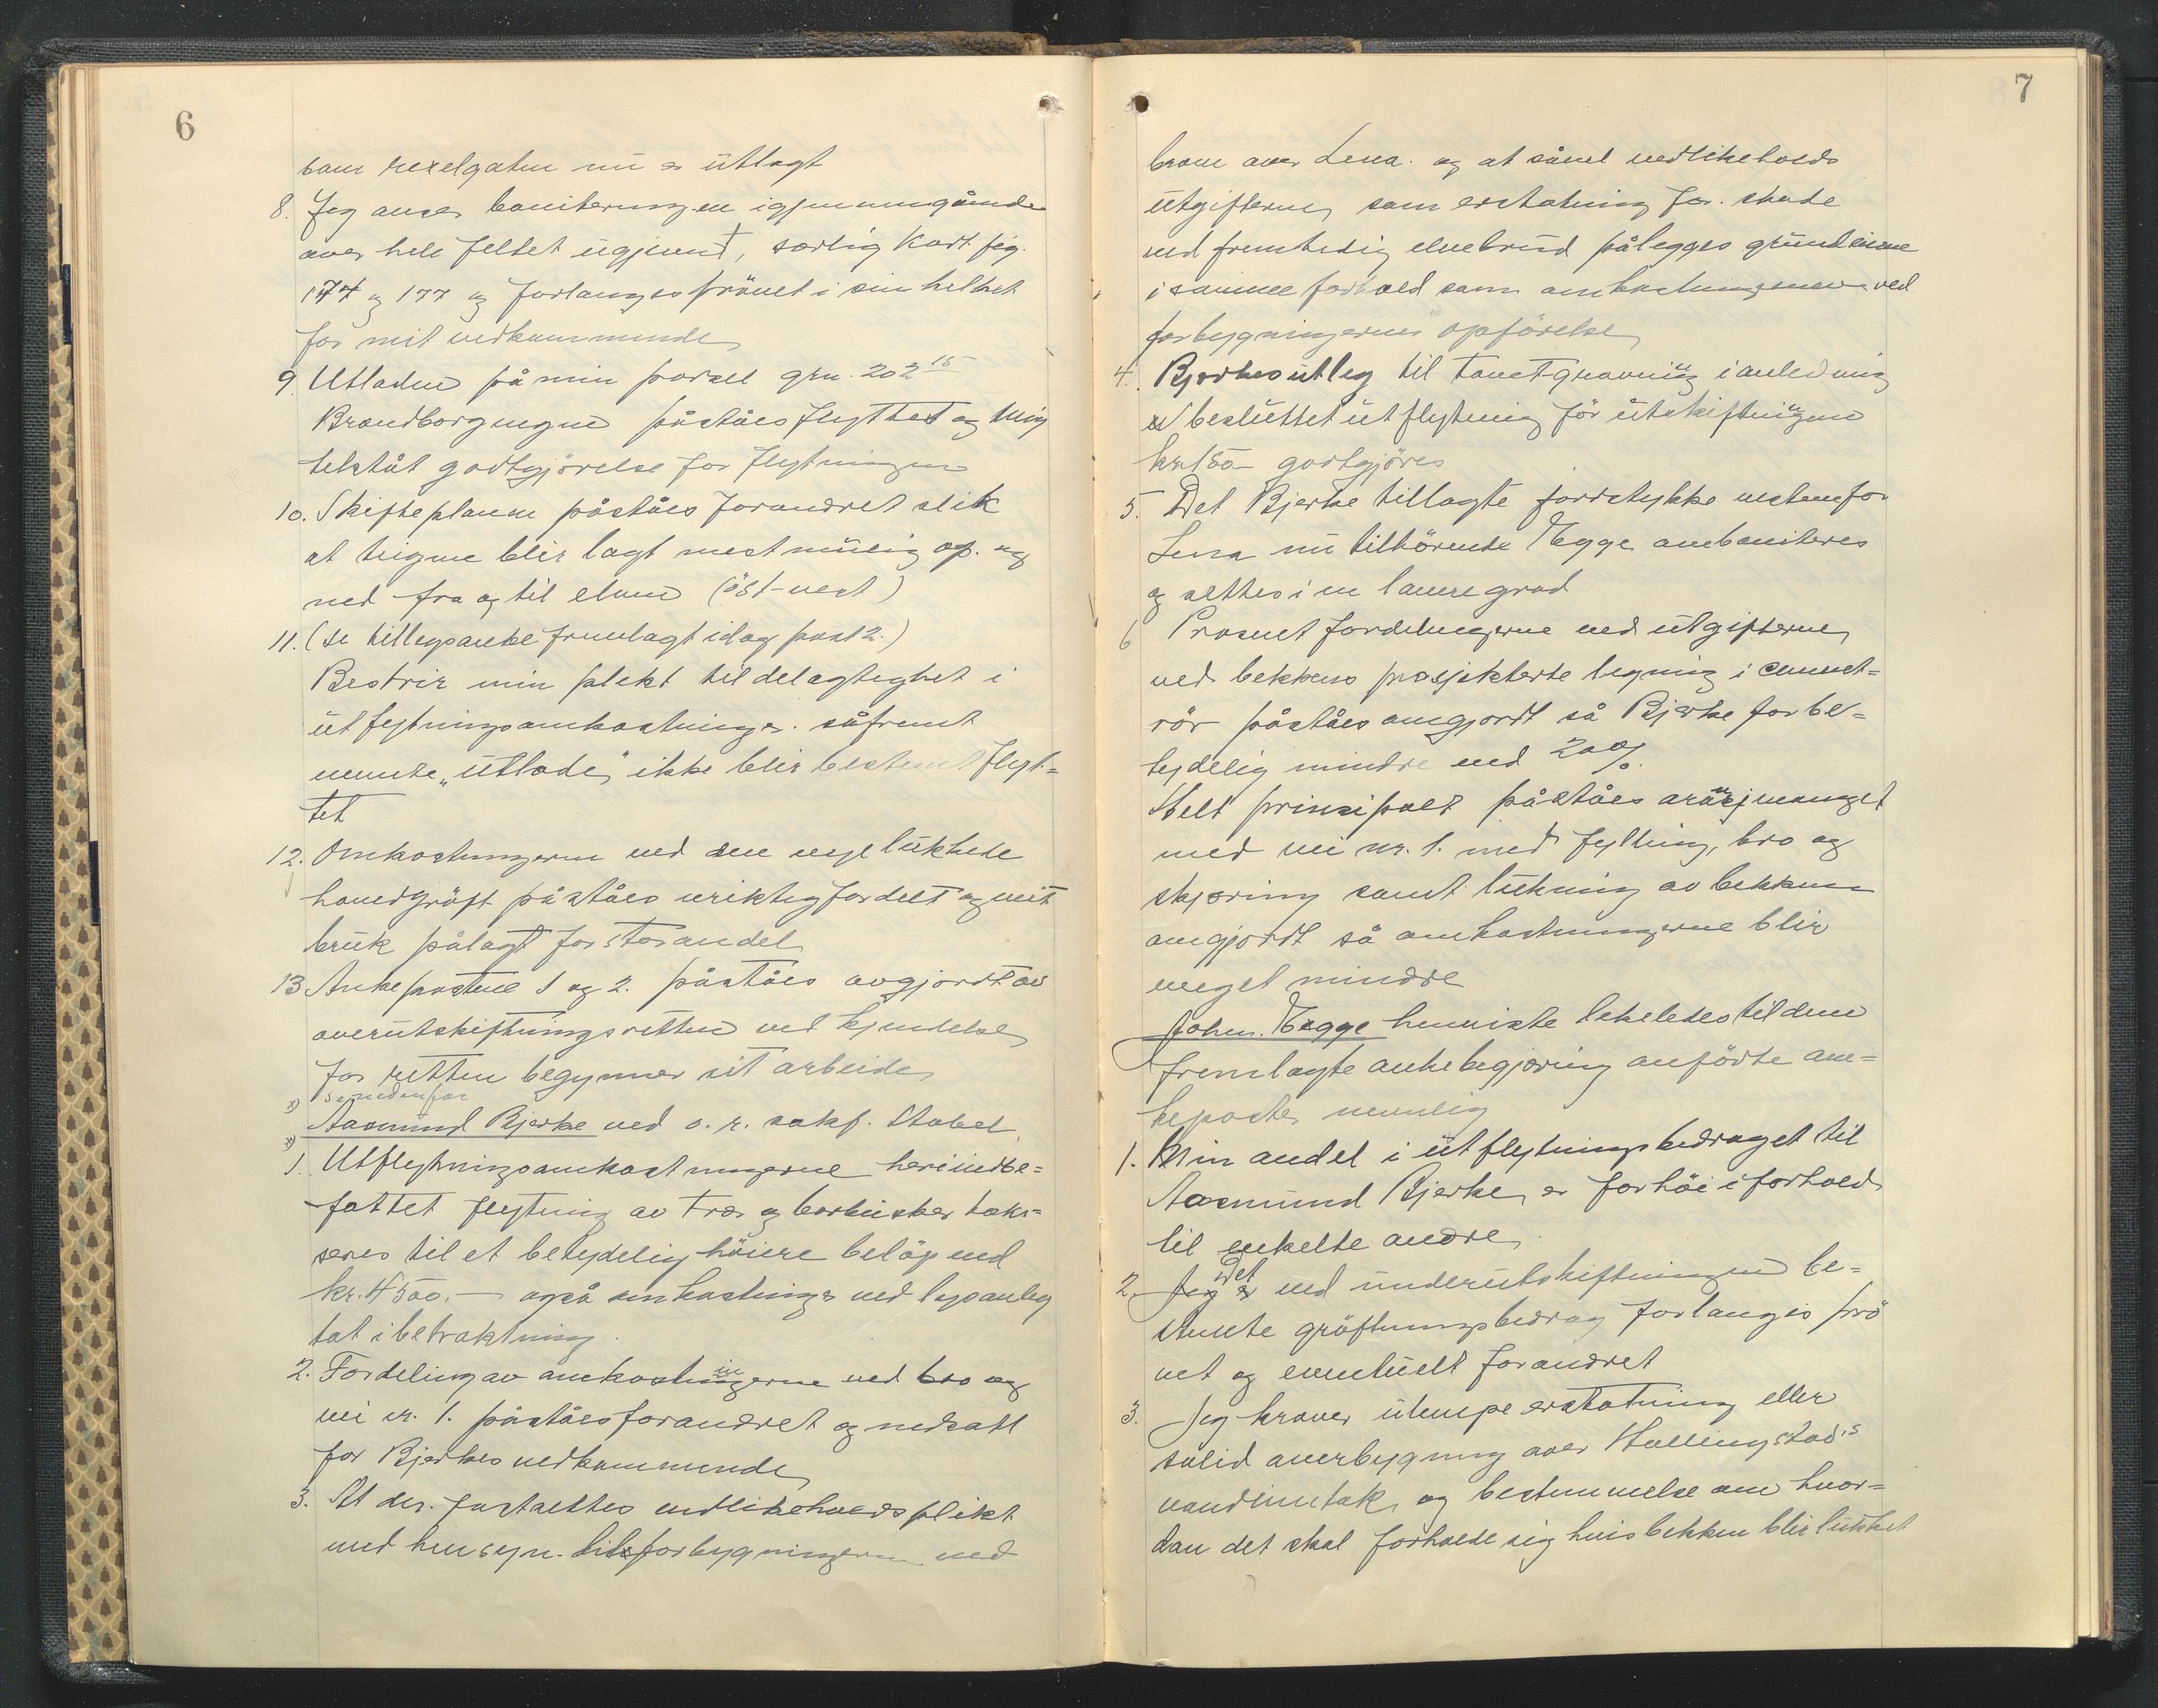 6
som rexelgaten nu er utlagt
8. Jeg anser boniteringen igjennemgående
over hele feltet ugjevnt, særlig kart fig.
174 og 177 og forlanges prövet i sin helhet
for mit vedkommende
9. Utladen på min parsel grn. 202 15
Brandborgengen påståes flyttet og mig
tilståt godtgjörelse for flytningen
10. Skifteplanen påståes forandret slik
at teigene blir lagt mest mulig op og
ned fra og til elven (öst-vest)
11. (se tillegsanke fremlagt idag post 2.)
Bestrir min plikt til delagtighet i
utflytningsomkostninger såfremt
nevnte „utlade" ikke blir bestemt flyt=
tet
12. Omkostningerne ved den nye lukkede
hovedgröft påståes uriktig fordelt og mit
bruk pålagt for stor andel
13 Ankepostene 1 og 2. påståes avgjordt av
overutskiftningsretten ved kjendelse
för retten begynner sit arbeide
x) se nedenfor
Aasmund Bjerke ved o. r. sakf. Stabel
x)
1. Utflytningsomkostningerne heri indbe=
fattet flytning av trær og bærbusker taks=
seres til et betydelig höiere belöp end
kr. 4500.— også omkostninger ved lysanleg
tat i betraktning.
2. Fordeling av omkostningerne ved bro og
vei nr. 1. påståes forandret og nedsatt
for Bjerkes vedkommende
3. At der fastsettes vedlikeholdsplikt
med hensyn til forbygningerne ved

7
broen over Lena. og at såvel vedlikeholds
utgifterne som erstatning for skade
ved fremtidig elvebrud pålegges grundeierne
i samme forhold som omkostningerne ved
forbygningernes opförelse
4. Bjerkes utleg til tomt-gravning i anledning
av besluttet utflytning för utskiftningen
kr 150- godtgjöres
5. Det Bjerke tillagte jordstykke vestenfor
Lena nu tilhörende Egge ombonitares
og settes i en lavere grad
6 Prosent fordelingerne ved utgifterne
ved bekkens prosjekterte legning i cement=
rör påståes omgjordt så Bjerke får be=
tydelig mindre end 20%.
Helt prinsipalt påståes aransjemanget
med vei nr. 1. med fylling, bro og
skjæring samt lukning av bekken
omgjordt så omkostningerne blir
meget mindre
Johen. Egge henviste likeledes til den
fremlagte ankebegjæring anförte an=
keposter nemlig
1. Min andel i utflytningsbidraget til
Aasmund Bjerke er for höi i forhold
til enkelte andre
2. Det ved underutskiftningen be=
stemte gröftningsbidrag forlanges prö
vet og eventuelt forandret
3. Jeg krever ulempeerstatning eller
solid overbygning over Hollingstad's
vandinntak og bestemmelse om hvor=
dan det skal forholde sig hvis bekken blir lukket